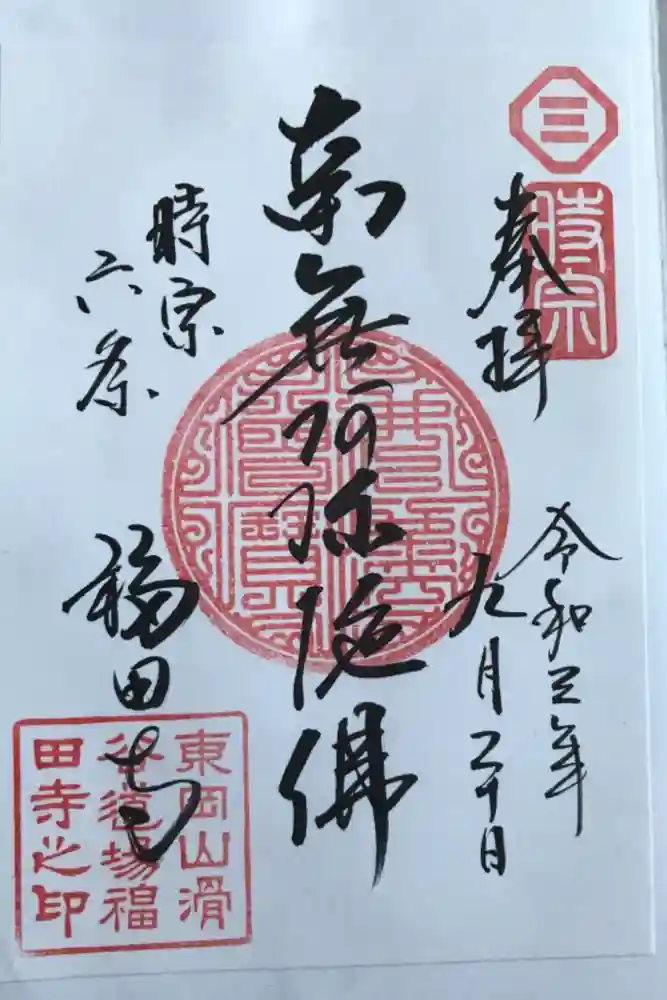 三
時宗
奉拝
令和三年
九月二十日
南無阿弥陀佛
時宗
六条
福田寺
東岡山滑
谷道場福
田寺之印